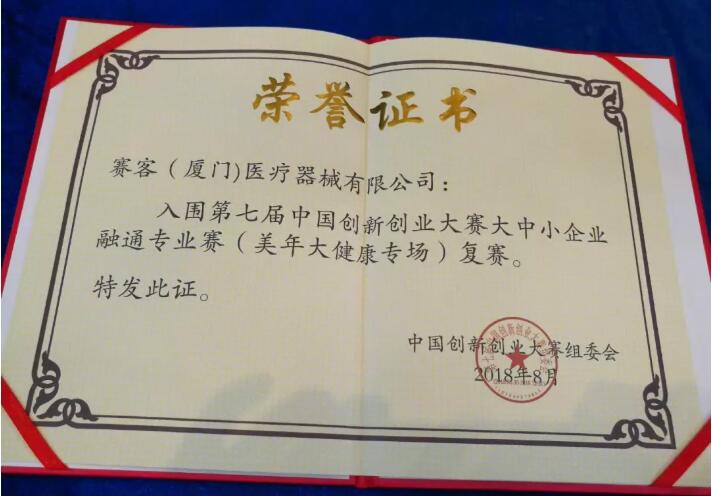 荣誉证书
赛客（厦门)医疗器械有限公司：
入围第七届中国创新创业大赛大中小企业
融通专业赛（美年大健康专场）复赛。
特发此证。
中国创新创业大赛组委会
2018年8月